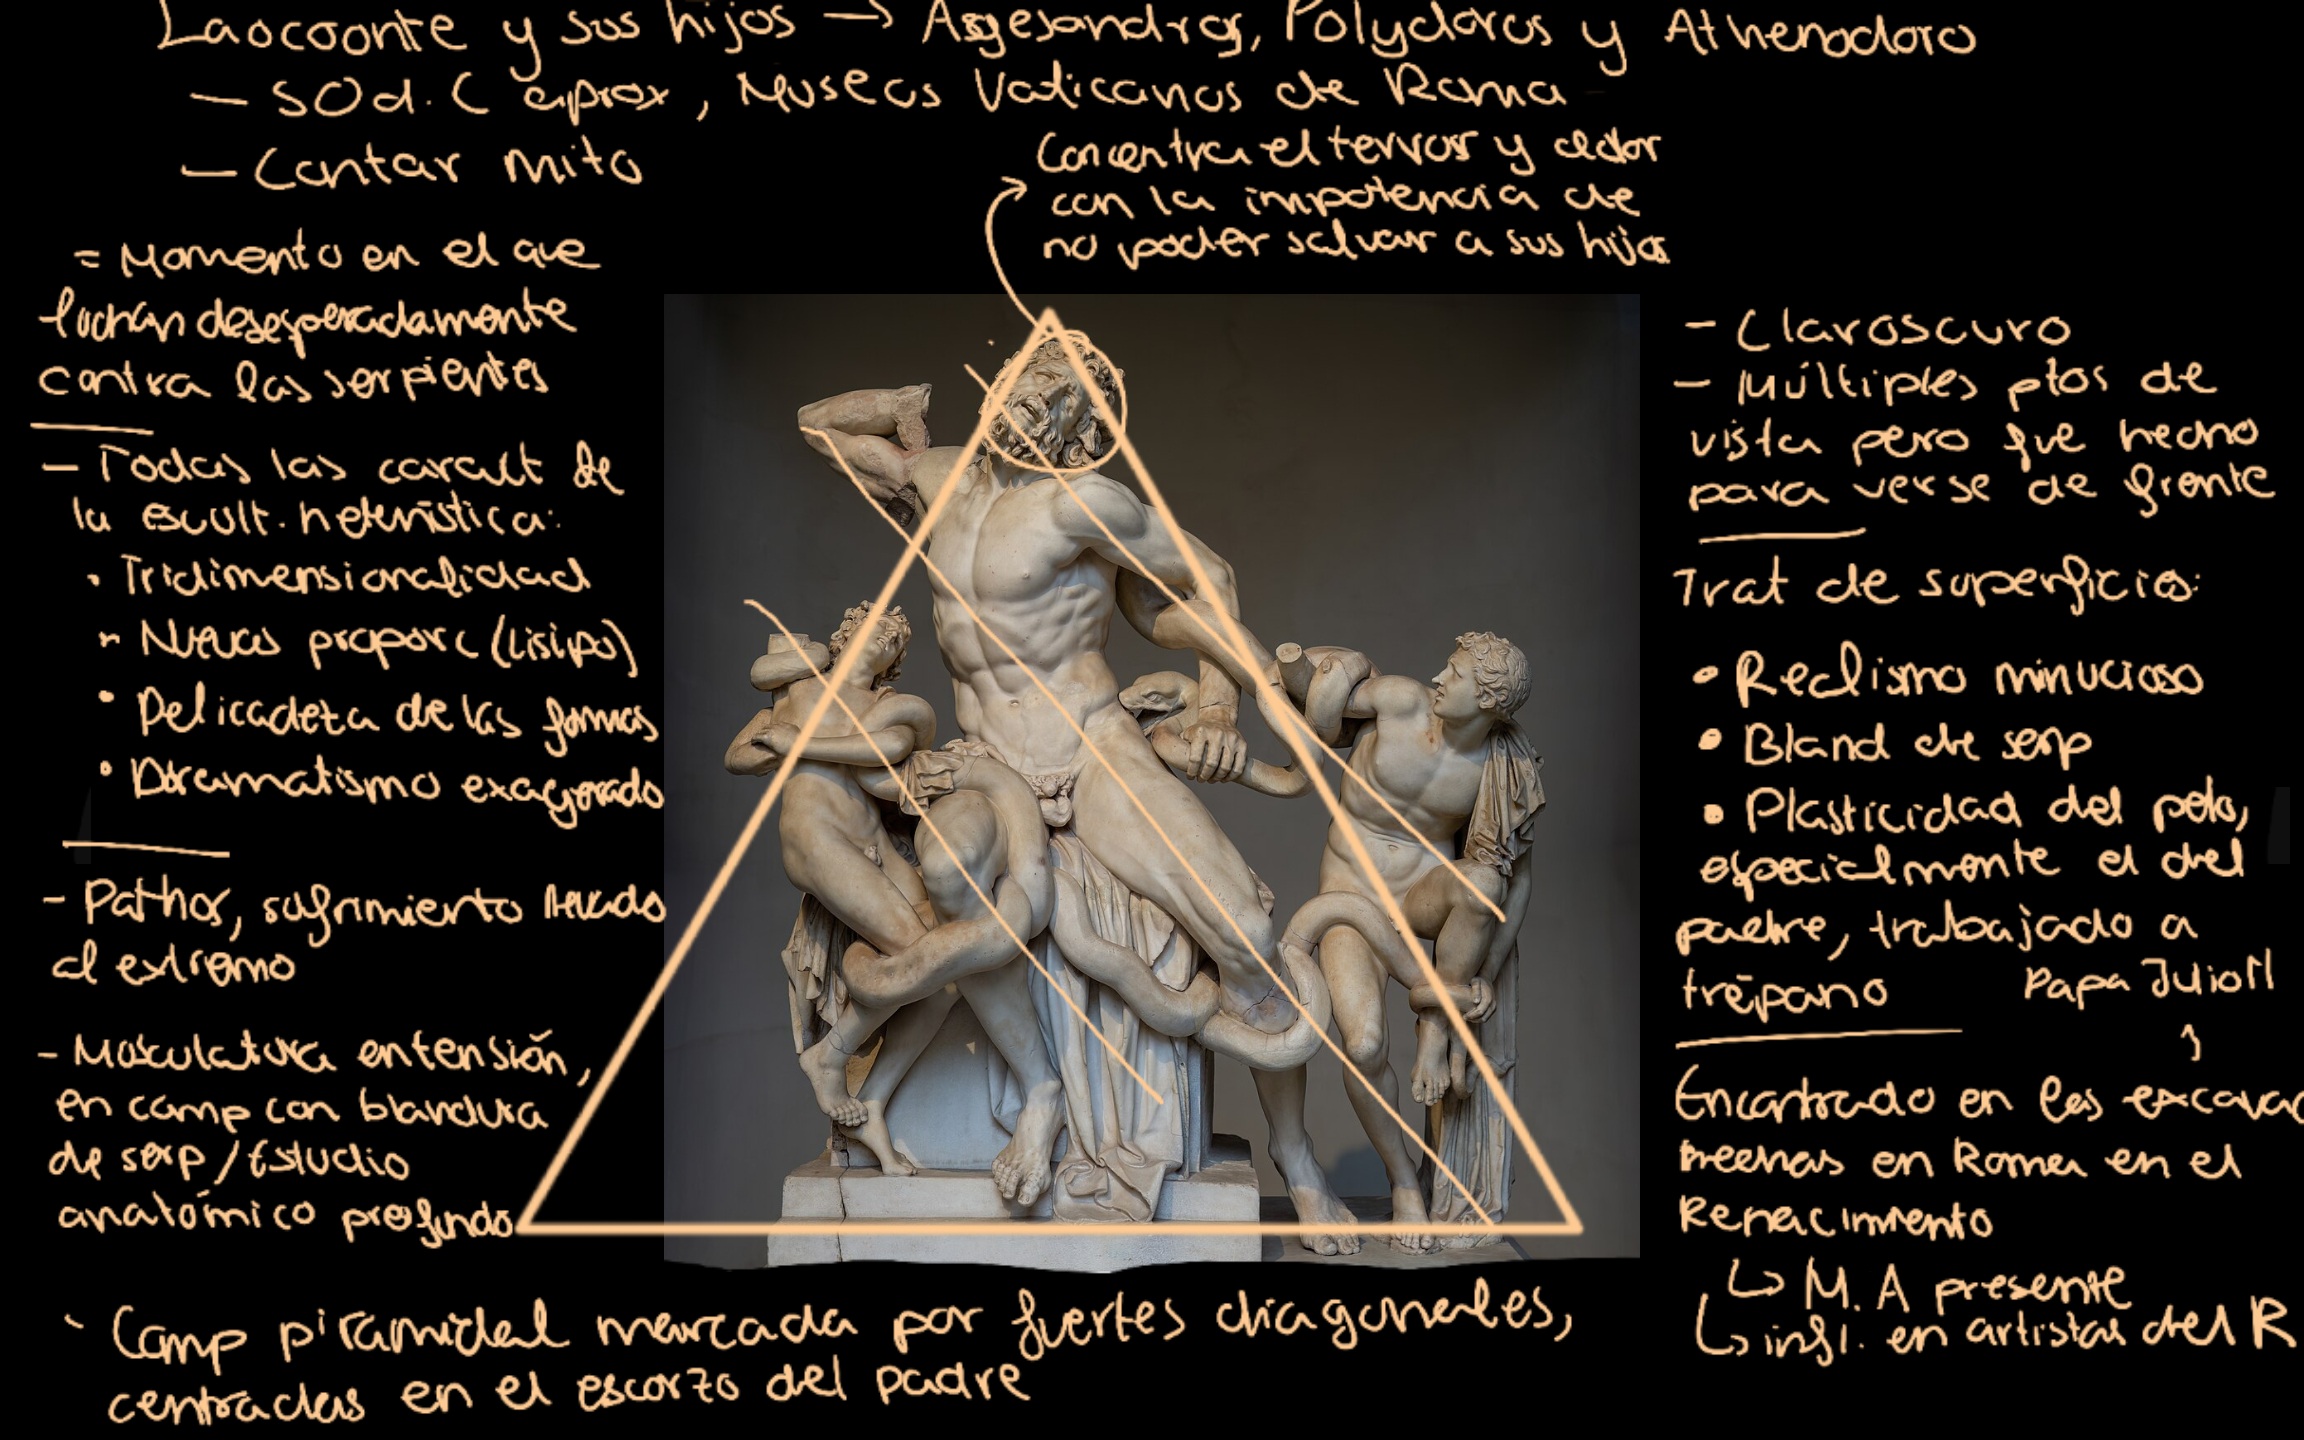 Laocoonte y sus hijos → Agesandros, Polydoros y Athenodoro
— 50 d. C aprox, Museos Vaticanos de Roma
— Contar mito
Concentra el terror y dolor
con la impotencia de
no poder salvar a sus hijos
= Momento en el que
luchan desesperadamente
contra las serpientes
— Todas las caract de
la escult. helenística:
• Tridimensionalidad
• Nuevas proporc (Lisipo)
• Delicadeza de las formas
• Dramatismo exagerado
- Pathos, sufrimiento llevado
al extremo
- Musculatura en tensión,
en comp con blandura
de serp / Estudio
anatómico profundo
- Claroscuro
- Múltiples ptos de
vista pero fue hecho
para verse de frente
Trat de superficies:
• Realismo minucioso
• Bland de serp
• Plasticidad del pelo,
especialmente el del
padre, trabajado a
trépano
Papa Julio II
Encontrado en las excavac
hechas en Roma en el
Renacimiento
↳ M. A presente
↳ infl. en artistas del R
- Comp piramidal marcada por fuertes diagonales,
centradas en el escorzo del padre